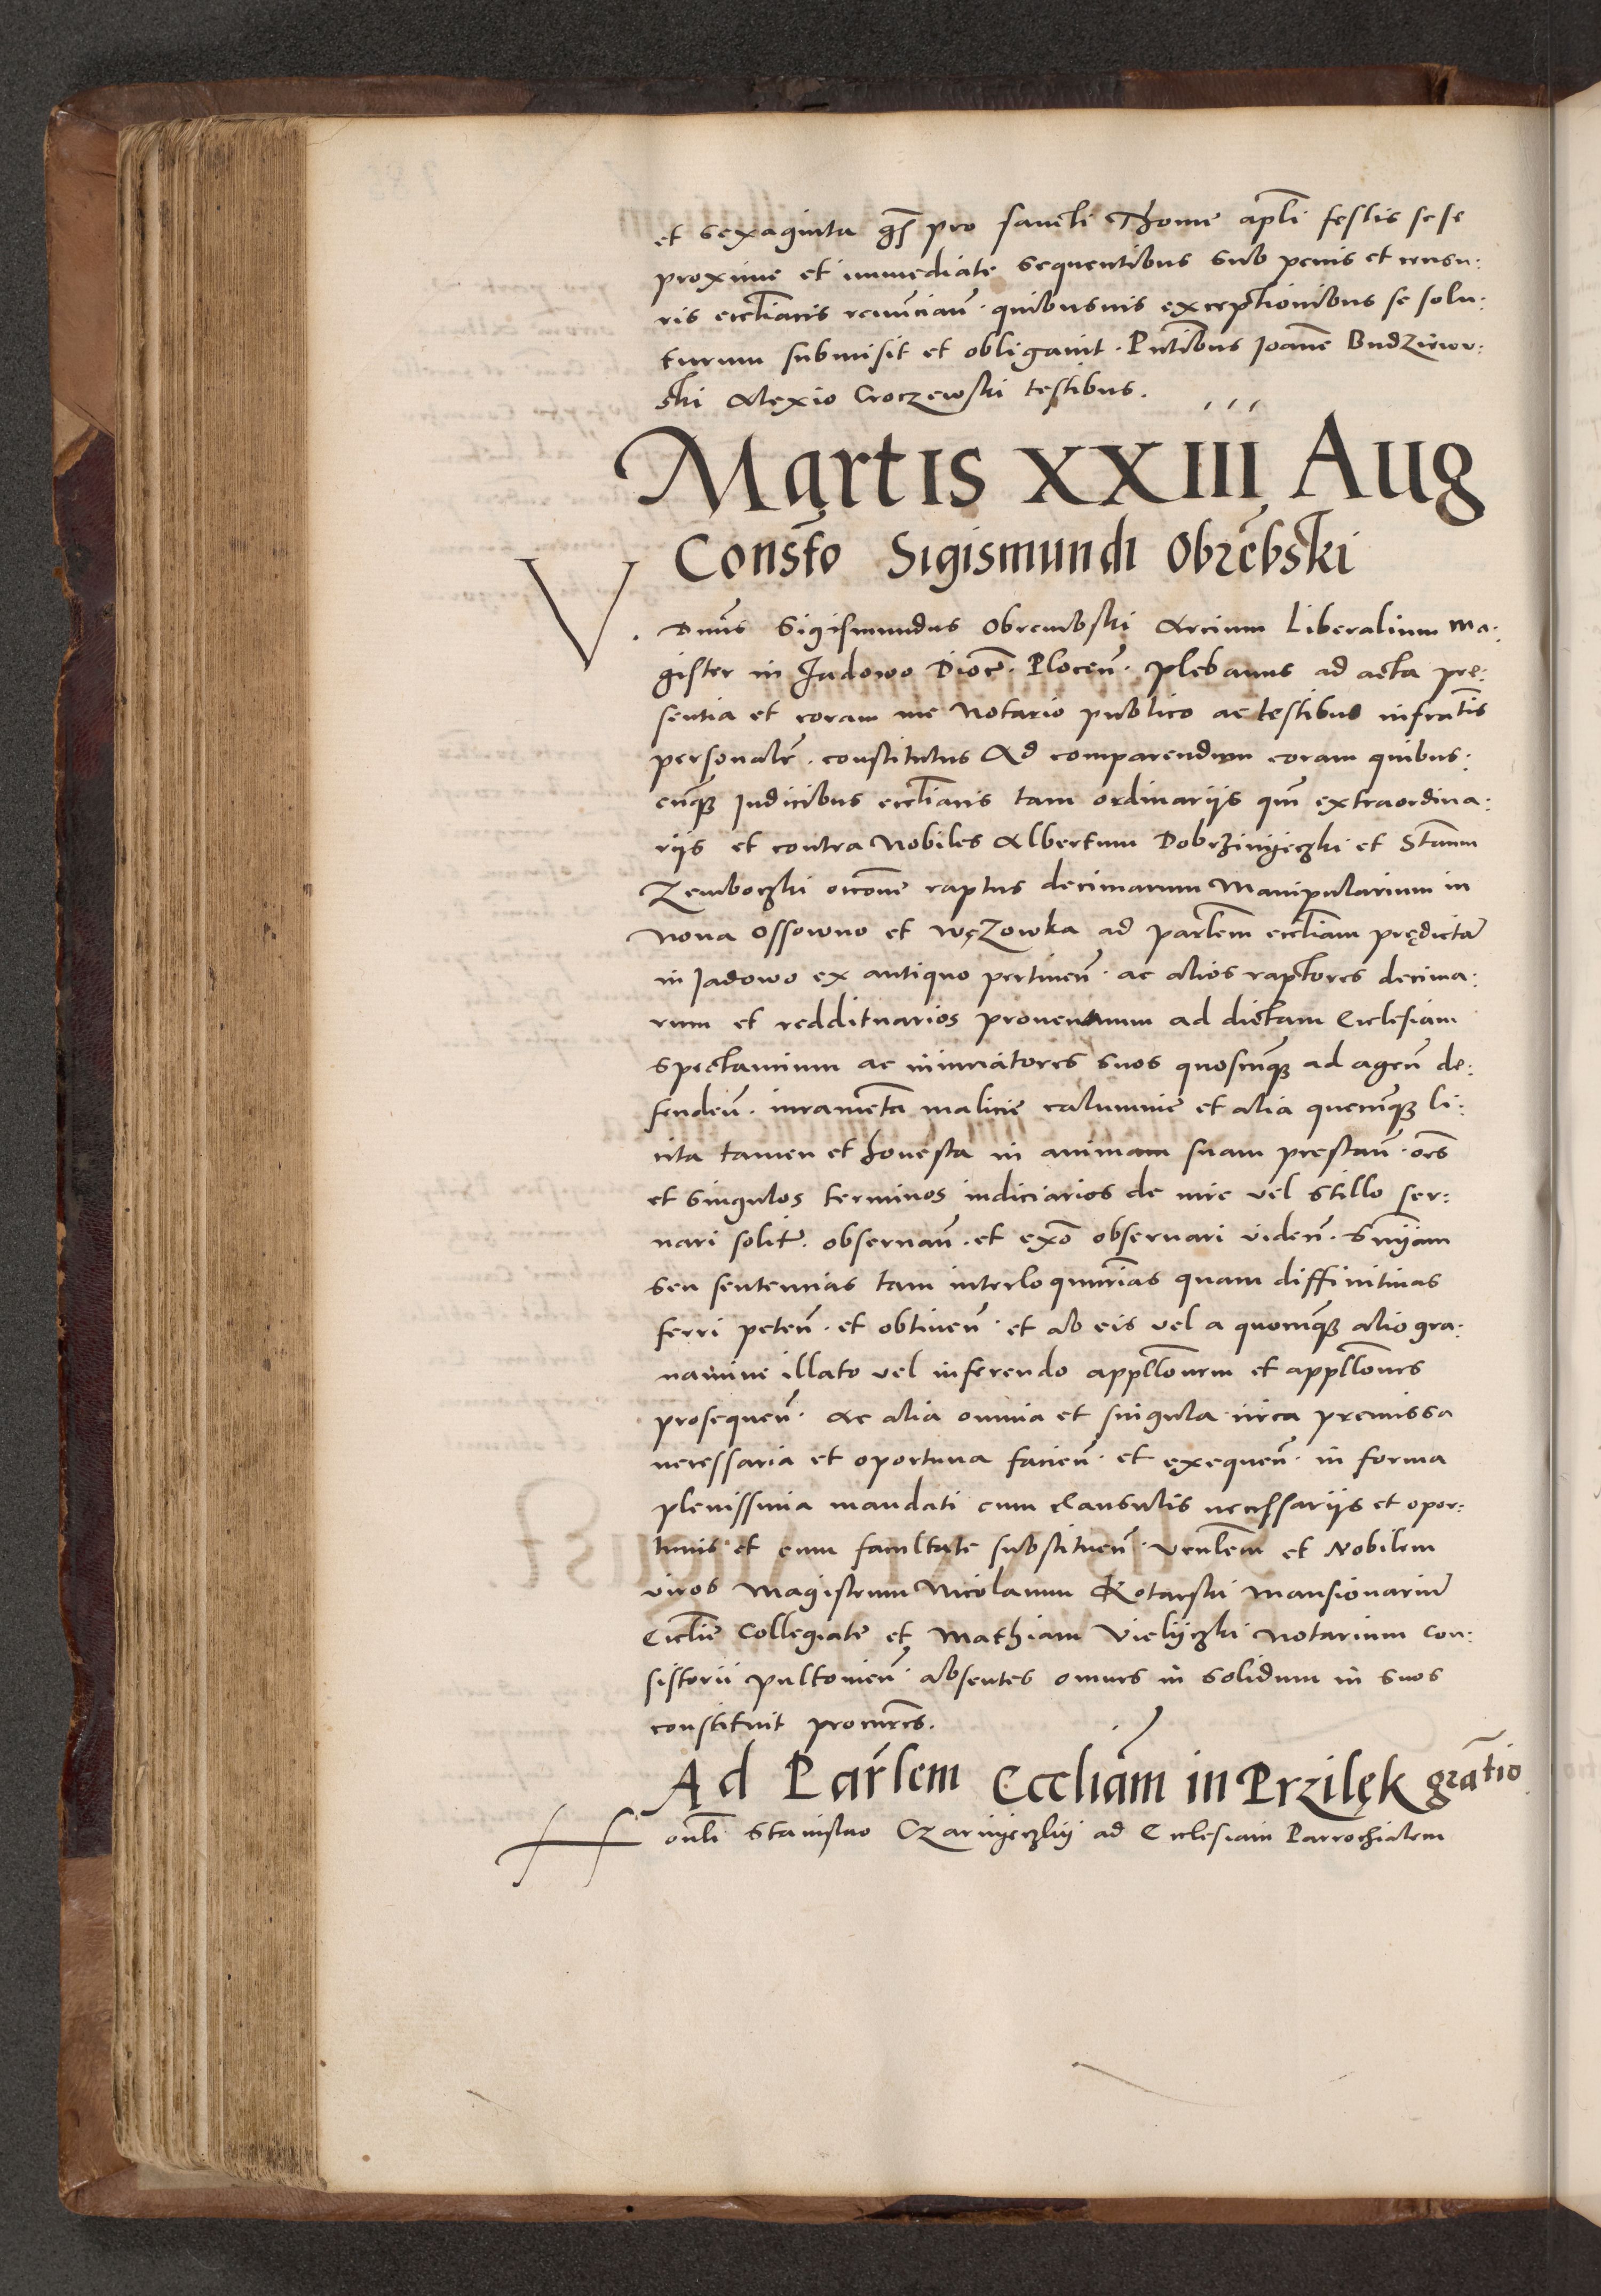 et sexaginta gʒ pro sancti Thome apli festis sese
proxime et immediate sequentibus sub penis et censu:
ris eccliacis renuncian̄. quibusuis exceptionibus se solu:
turum submisit et obligauit. Pn̄tibus Joan̄e Budzieiew:
ski Alexio Croczewski testibus.
Martis XXIII Aug
Constō Sigismundi Obrēbski
V. Dnūs Sigismundus Obrembski Arcium Liberalium ma:
gister in Jadowo Dioc̄. Plocen̄. plebanus ad acta pre:
sentia et coram me Notario publico ac testibus infratis
personalr̄. constitutus Ad comparendum coram quibus:
cunqʒ Judicibus eccliacis tam ordinariis qm̄ extraordina:
riis et contra Nobiles Albertum Dobrzinyeczki et Stan̄m
Zemboczki occon̄e raptus decimarum Manipularium in
Noua Ossowno et Węzowka ad parlem eccliam prędictā
in Jadowo ex antiquo pertinen̄. ac alios raptores decima:
rum et reddituarios prouentuum ad dictam Ecclesiam
spectancium ac iniuriatores suos quoscunqʒ ad agen̄ de:
fenden̄. iuramenta malicie calumnie et alia quecunqʒ li:
cita tamen et honesta in animam suam prestan̄. oēs
et singulos terminos iudiciarios de iure vel stillo ser:
uari solit̄. obseruan̄. et exō obseruari viden̄. Sniam
seu sentencias tam interloqutorias quam diffinitiuas
ferri peten̄. et obtinen̄. et ab eis vel a quocunqʒ alio gra:
uamine illato vel inferendo appllonem et appllones
prosequen̄. Ac alia omnia et singula circa premissa
necessaria et oportuna facien̄. et exequen̄. in forma
plenissima mandati cum clausulis necessariis et opor:
tunis et cum facultate substituen̄. Venlem et Nobilem
viros Magistrum Nicolaum Kotarski Mansionariū
Ecclie Collegiate et Mathiam Vieliiczki Notarium Con:
sistorii pultouien̄. absentes omnes in solidum in suos
constituit procures.
Ad Parlem Eccliam in Przilęk gratio
Honli Stanislao Czarnyeczkij ad Ecclesiam Parrochialem